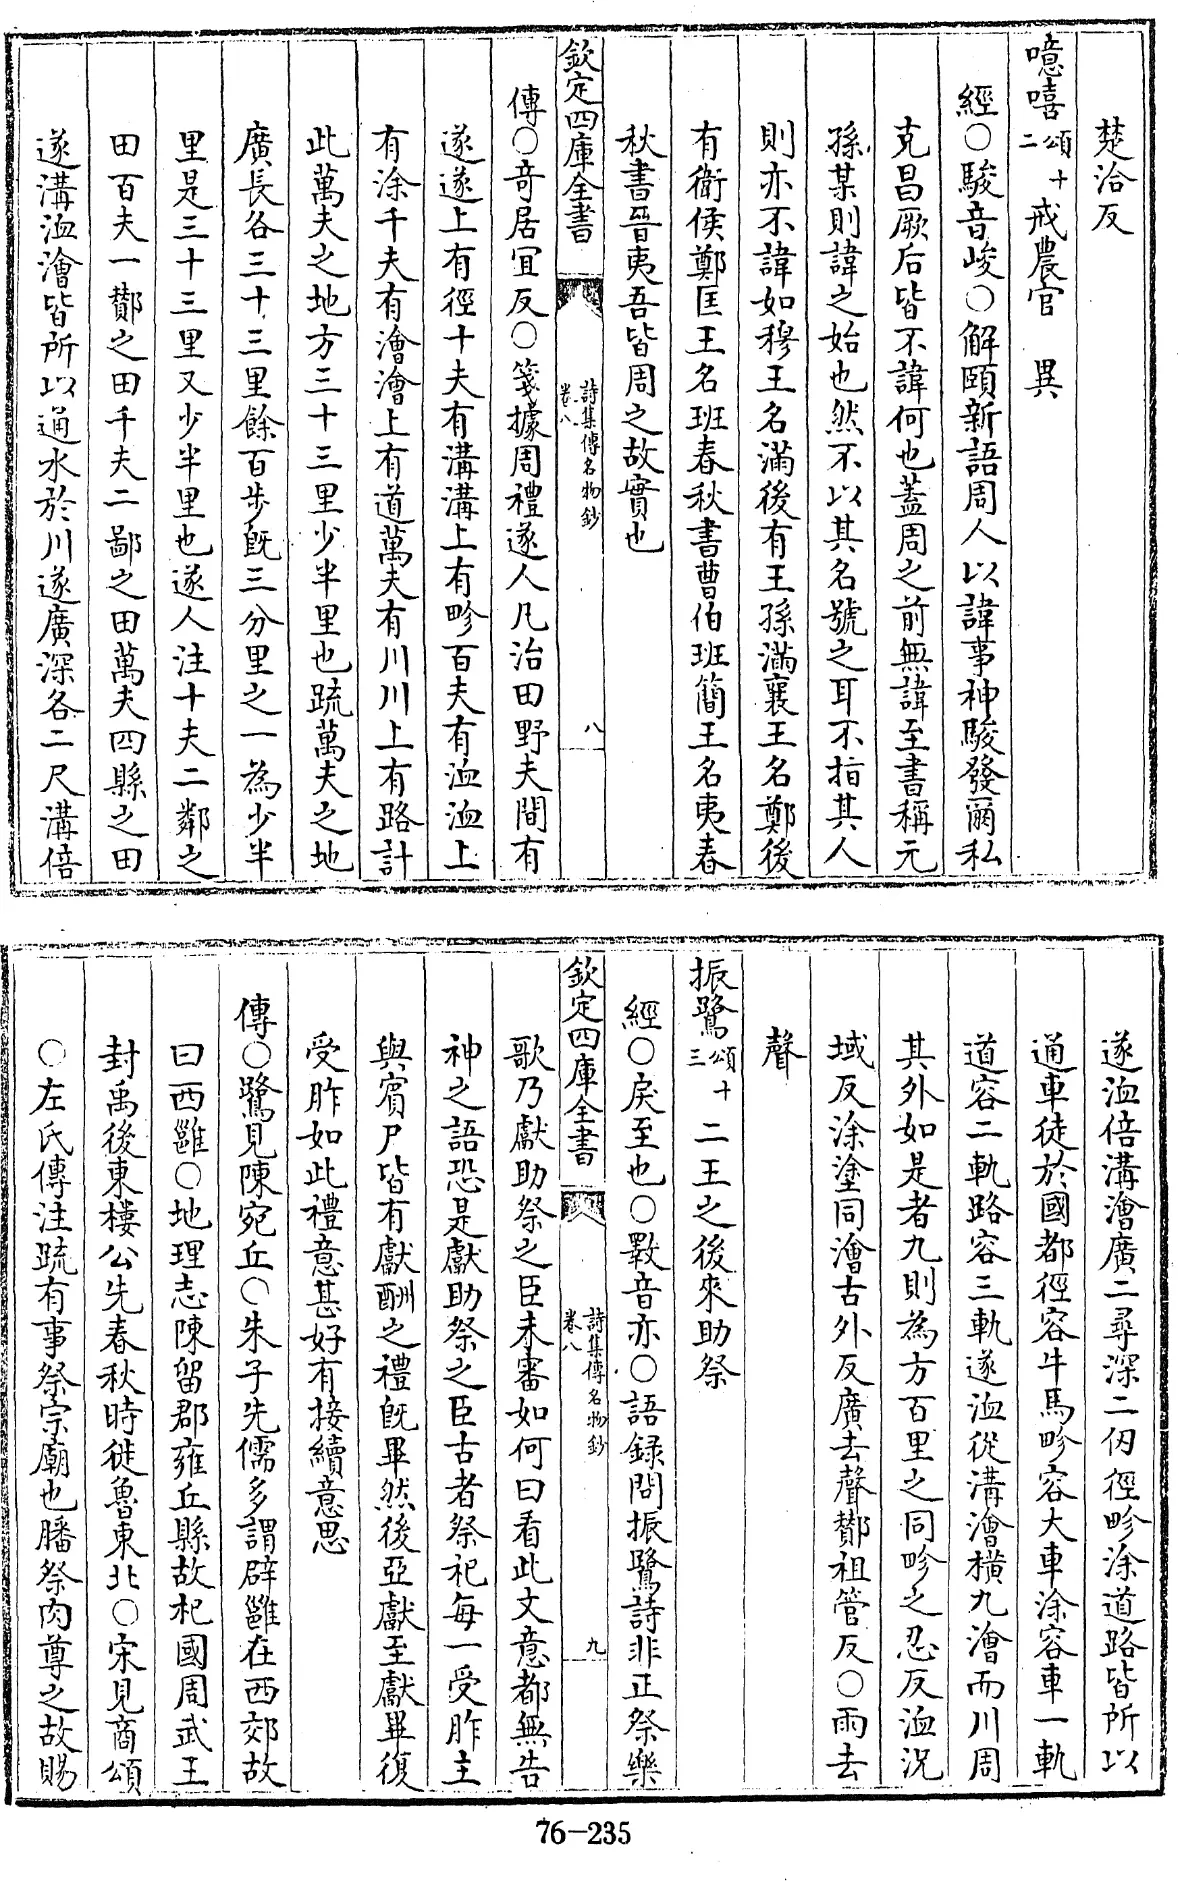 楚洽反
噫嘻頌十二戒農官　異
經○駿音峻○解頤新語周人以諱事神駿發爾私
克昌厥后皆不諱何也蓋周之前無諱至書稱元
孫某則諱之始也然不以其名號之耳不指其人
則亦不諱如穆王名滿後有王孫滿襄王名鄭後
有衛侯鄭匡王名班春秋書曹伯班簡王名夷春
秋書晉夷吾皆周之故實也
欽定四庫全書　詩集傳名物鈔卷八　八
傳○竒居宜反○箋據周禮遂人凡治田野夫間有
遂遂上有徑十夫有溝溝上有畛百夫有洫洫上
有涂千夫有澮澮上有道萬夫有川川上有路計
此萬夫之地方三十三里少半里也疏萬夫之地
廣長各三十三里餘百步既三分里之一為少半
里是三十三里又少半里也遂人注十夫二鄰之
田百夫一酇之田千夫二鄙之田萬夫四縣之田
遂溝洫澮皆所以通水於川遂廣深各二尺溝倍
遂洫倍溝澮廣二尋深二仞徑畛涂道路皆所以
通車徒於國都徑容牛馬畛容大車涂容車一軌
道容二軌路容三軌遂洫從溝澮橫九澮而川周
其外如是者九則為方百里之同畛之忍反洫況
域反涂塗同澮古外反廣去聲酇祖管反○雨去
聲
振鷺頌十三　二王之後來助祭
經○戾至也○斁音亦○語録問振鷺詩非正祭樂
欽定四庫全書　詩集傳名物鈔卷八　九
歌乃獻助祭之臣未審如何曰看此文意都無告
神之語恐是獻助祭之臣古者祭祀每一受胙主
與賓尸皆有獻酬之禮既畢然後亞獻至獻畢復
受胙如此禮意甚好有接續意思
傳○鷺見陳宛丘○朱子先儒多謂辟雝在西郊故
曰西雝○地理志陳留郡雍丘縣故杞國周武王
封禹後東樓公先春秋時徙魯東北○宋見商頌
○左氏傳注疏有事祭宗廟也膰祭肉尊之故賜
76-235